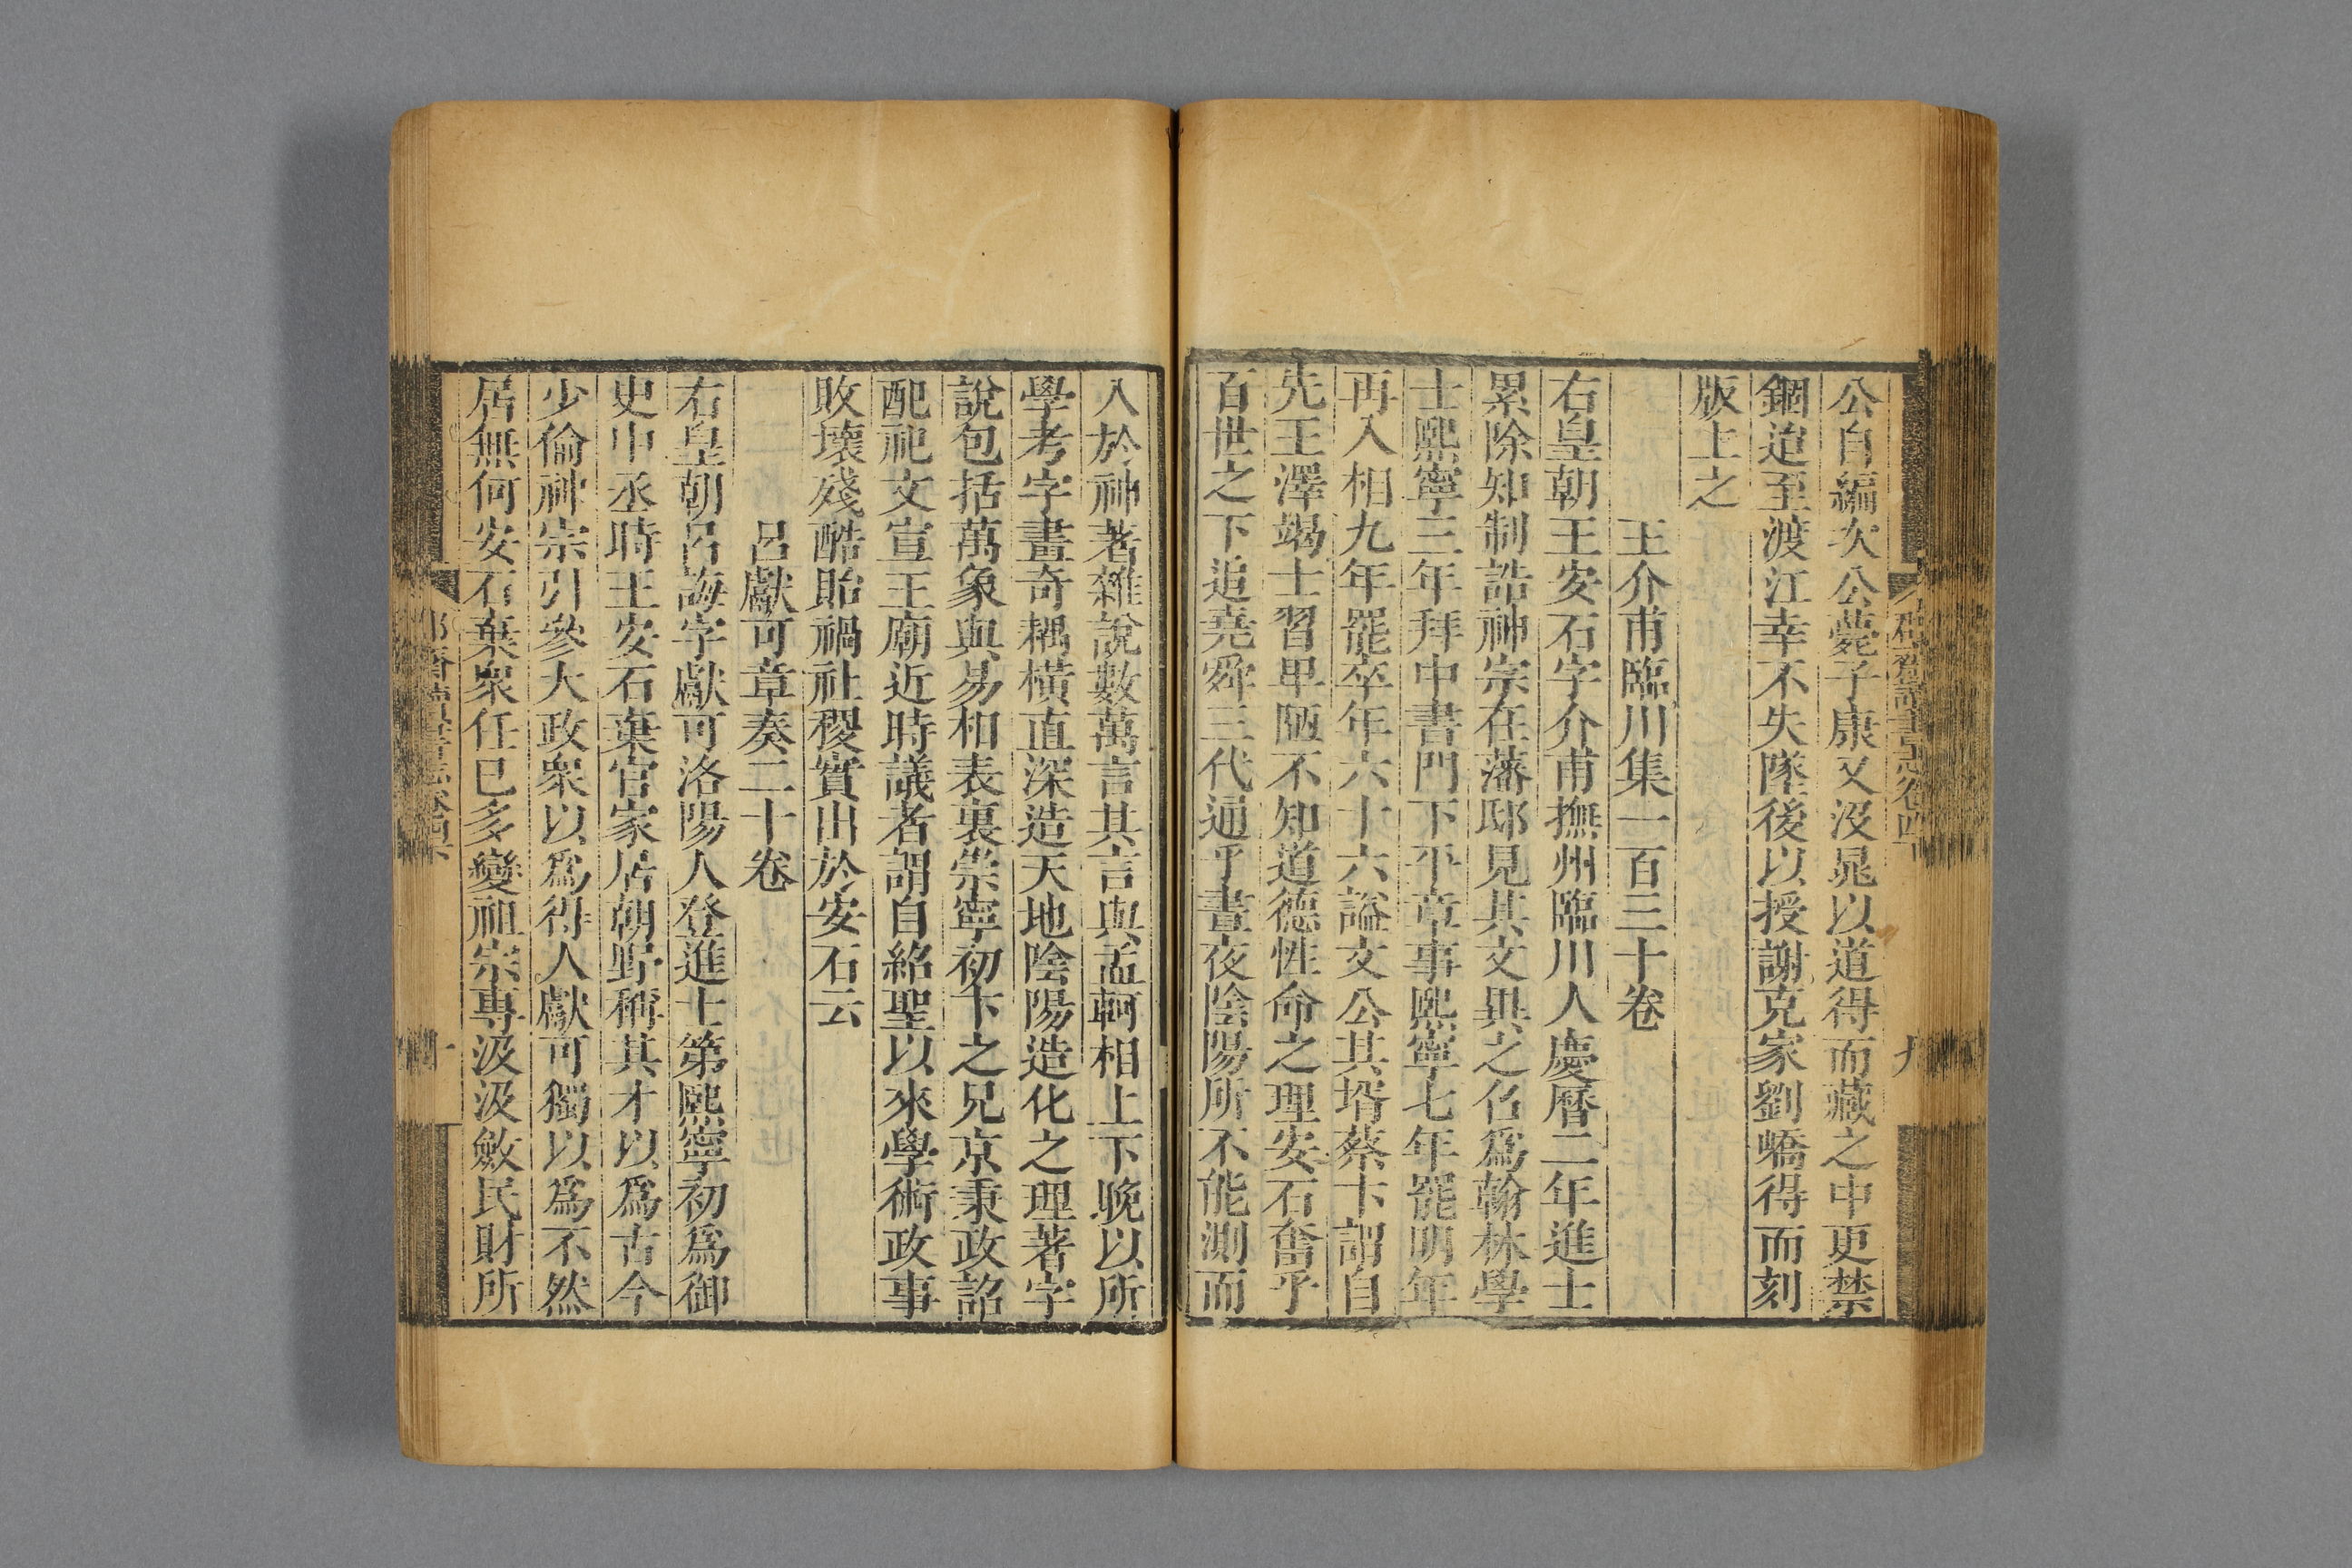 公自編次公薨子康又沒晁以道得而藏之中更禁
錮迨至渡江幸不失墜後以授謝克家劉嶠得而刻
版上之
王介甫臨川集一百三十卷
右皇朝王安石字介甫撫州臨川人慶曆二年進士
累除知制誥神宗在藩邸見其文異之召爲翰林學
士熙寧三年拜中書門下平章事熙寧七年罷明年
再入相九年罷卒年六十六謚文公其壻蔡卞謂自
先王澤竭士習卑陋不知道德性命之理安石奮乎
百世之下追堯舜三代通乎晝夜陰陽所不能測而
入於神著雜說數萬言其言與孟軻相上下晚以所
學考字畫奇耦橫直深造天地陰陽造化之理著字
說包括萬象與易相表裏崇寧初卞之兄京秉政詔
配祀文宣王廟近時議者謂自紹聖以來學術政事
敗壞殘酷貽禍社稷實出於安石云
呂獻可章奏二十卷
右皇朝呂誨字獻可洛陽人登進士第熙寧初爲御
史中丞時王安石棄官家居朝野稱其才以爲古今
少倫神宗引參大政衆以爲得人獻可獨以爲不然
居無何安石棄衆任己多變祖宗專汲汲斂民財所